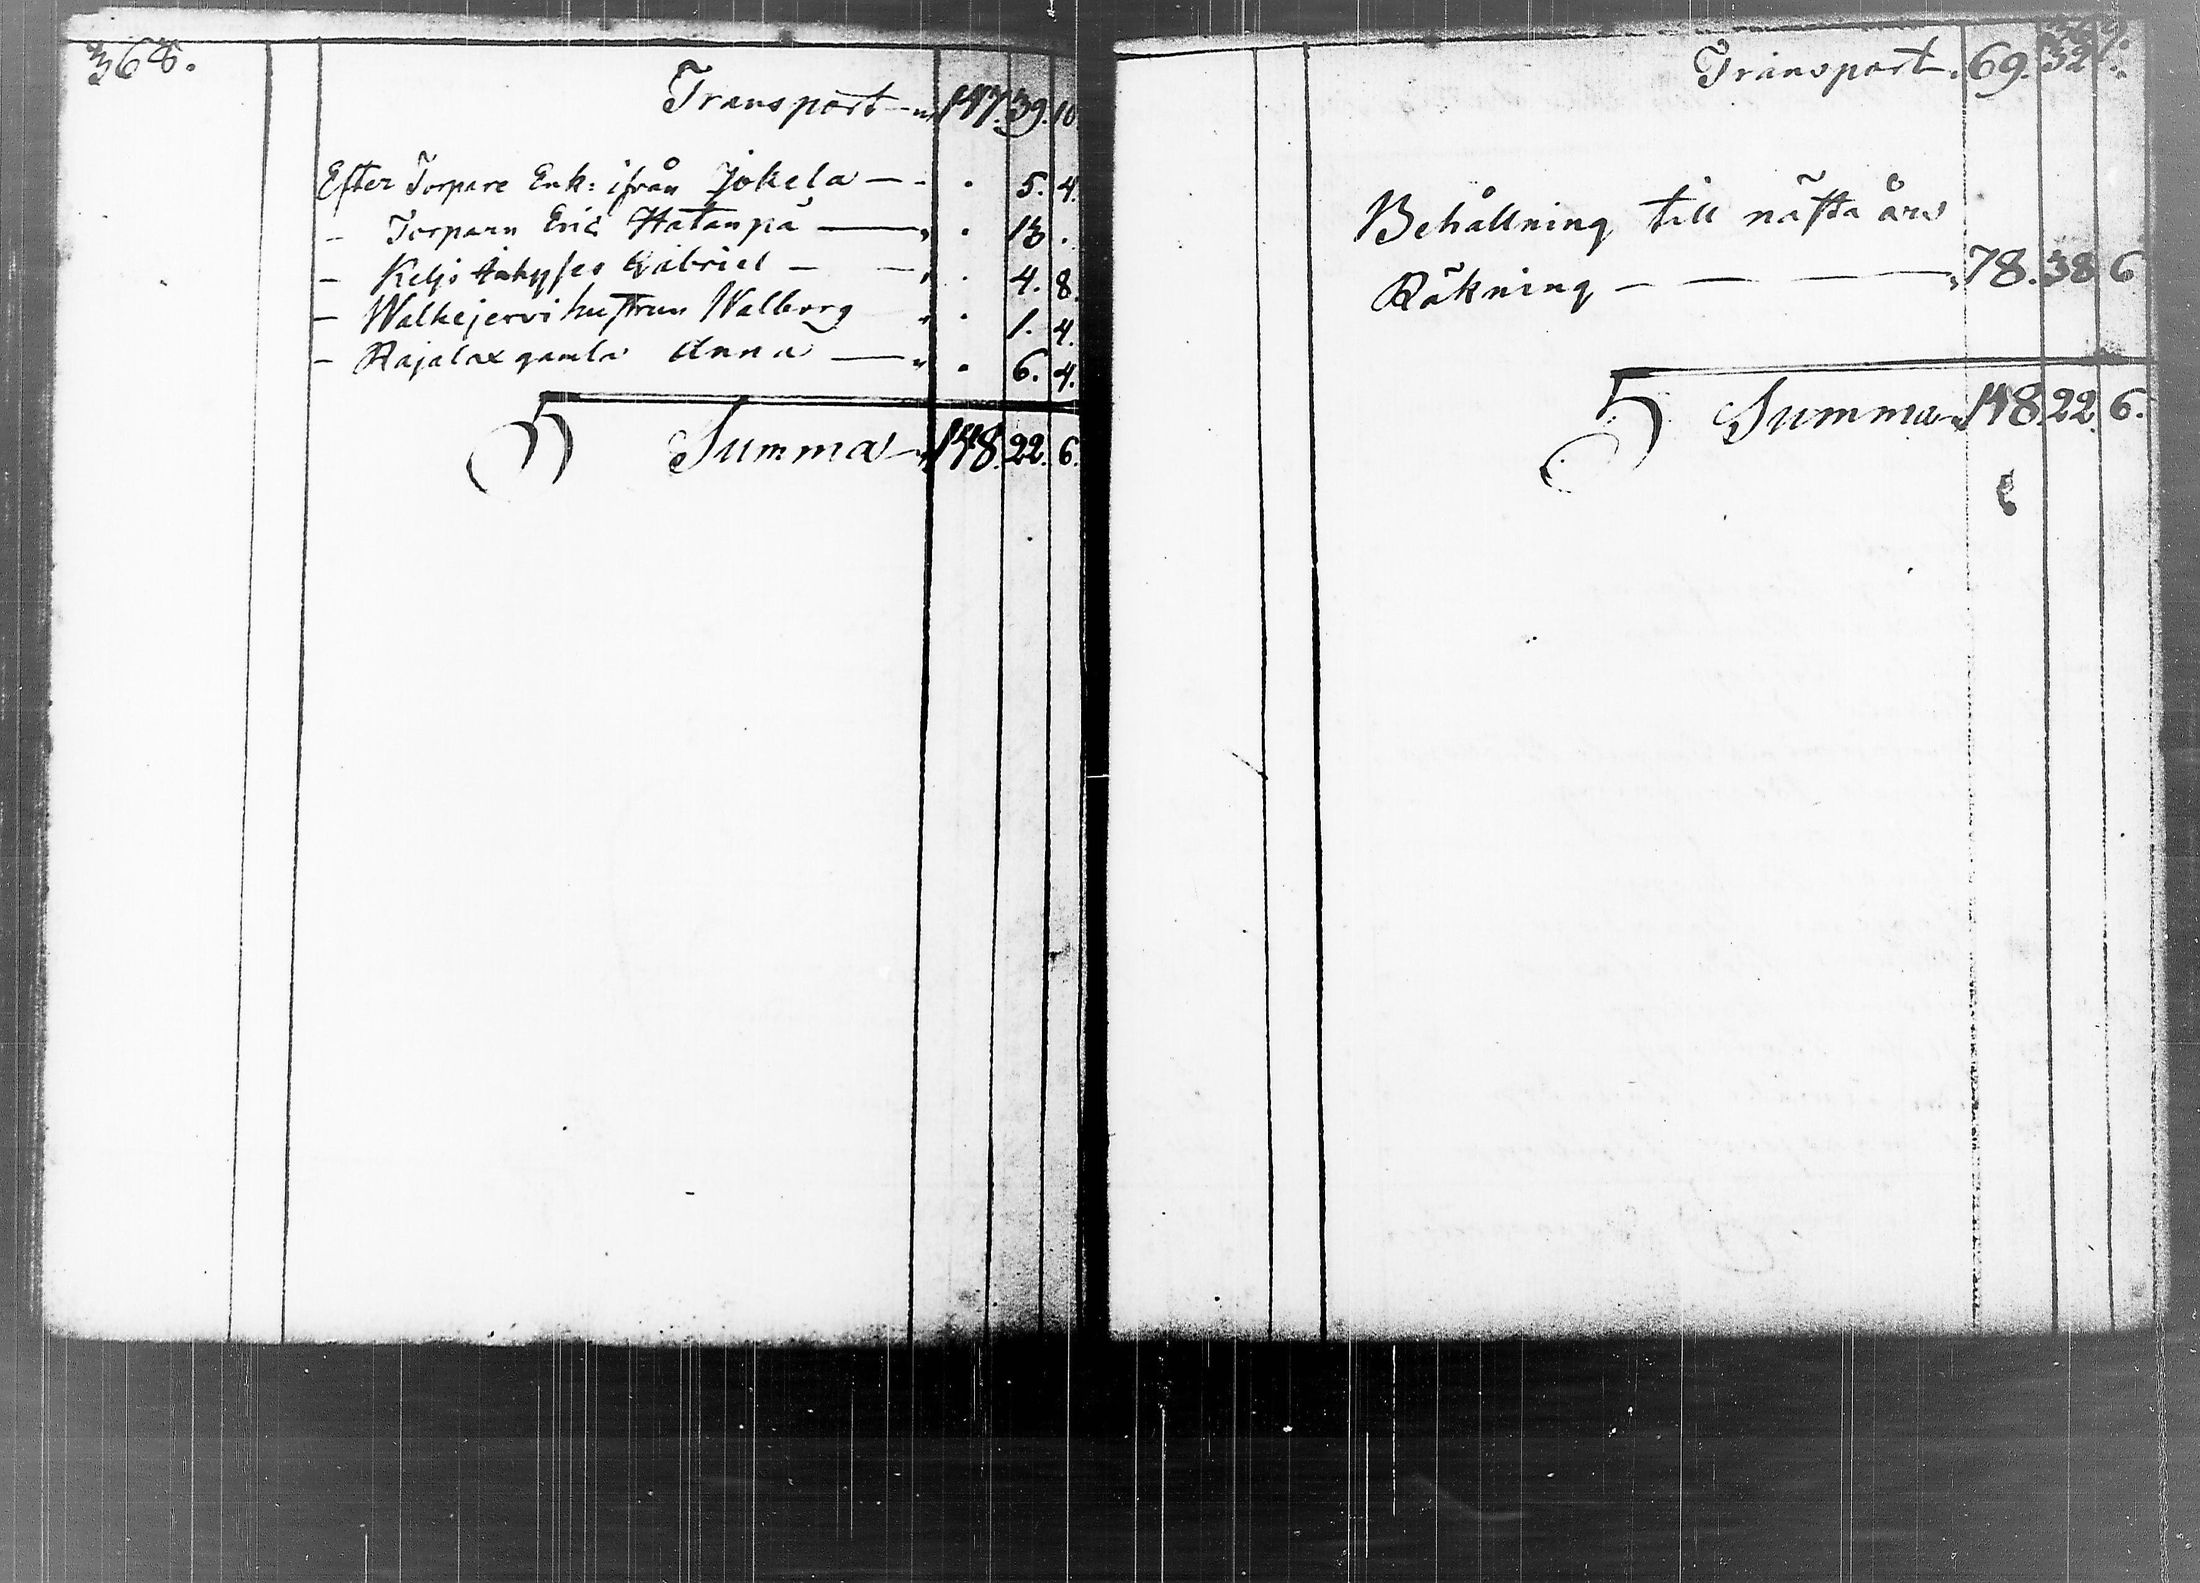 368.
Transport — 147. 39. 10
Efter Torpare Enk: ifrån Jokela — . 5. 4.
— Torparn Eric Hatanpä — . 13 .
— Keljo Gabriel — . 4. 8.
— Walkejervi hustrun Walborg . 1. 4.
— Rajalax gamla Anna — . 6. 4.
Summa — 148. 22. 6.
369.
Transport. 69. 32
Behållning till nästa års
Räkning — — — 78. 38 6
Summa 148. 22. 6.